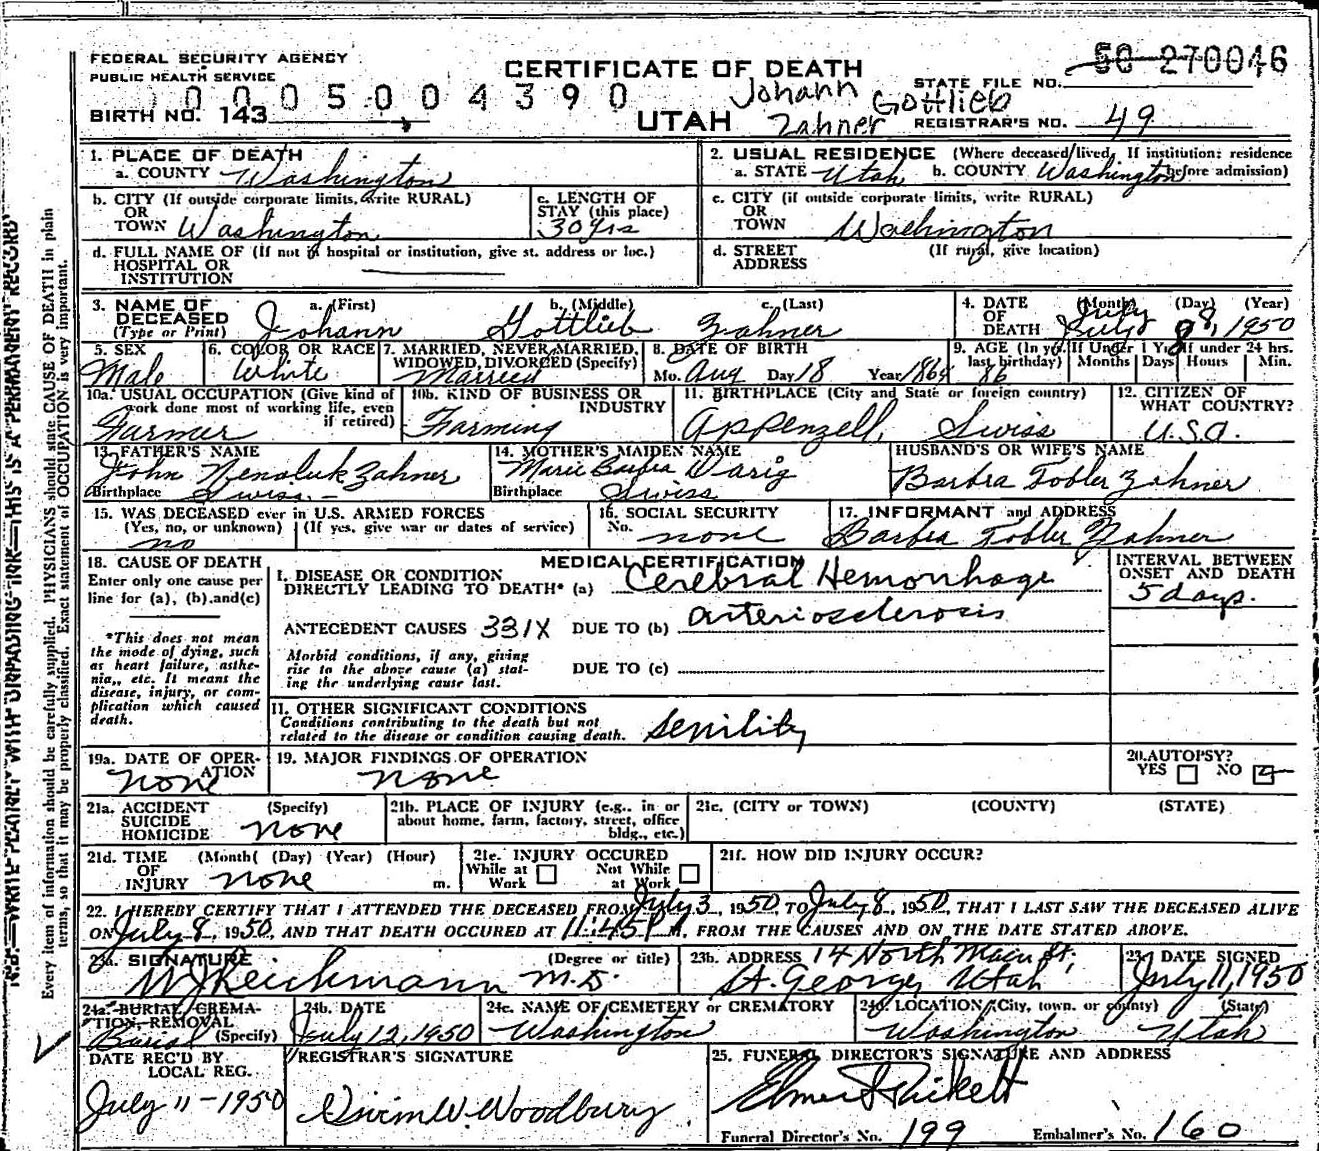 FEDERAL SECURITY AGENCY
PUBLIC HEALTH SERVICE
CERTIFICATE OF DEATH
STATE FILE NO. 50 270046
0 0 0 5 0 0 4 3 9 0
BIRTH NO. 143
UTAH
Johann Gottlieb Zahner
REGISTRAR'S NO. 49
N.B.—WRITE PLAINLY WITH UNFADING INK—THIS IS A PERMANENT RECORD
Every item of information should be carefully supplied. PHYSICIANS should state CAUSE OF DEATH in plain
terms, so that it may be properly classified. Exact statement of OCCUPATION is very important.
1. PLACE OF DEATH
a. COUNTY Washington
2. USUAL RESIDENCE (Where deceased lived. If institution: residence before admission)
a. STATE Utah b. COUNTY Washington
b. CITY (If outside corporate limits, write RURAL)
OR
TOWN Washington
c. LENGTH OF
STAY (this place)
30 yrs
c. CITY (if outside corporate limits, write RURAL)
OR
TOWN Washington
d. FULL NAME OF (If not in hospital or institution, give st. address or loc.)
HOSPITAL OR
INSTITUTION
d. STREET (If rural, give location)
ADDRESS
3. NAME OF a. (First) b. (Middle) c. (Last)
DECEASED
(Type or Print) Johann Gottlieb Zahner
4. DATE (Month) (Day) (Year)
OF
DEATH July 8, 1950
5. SEX
Male
6. COLOR OR RACE
White
7. MARRIED, NEVER MARRIED,
WIDOWED, DIVORCED (Specify)
Married
8. DATE OF BIRTH
Mo. Aug Day 18 Year 1864
9. AGE (In yrs. last birthday) If Under 1 Yr. If under 24 hrs.
86 Months Days Hours Min.
10a. USUAL OCCUPATION (Give kind of
work done most of working life, even
if retired)
Farmer
10b. KIND OF BUSINESS OR
INDUSTRY
Farming
11. BIRTHPLACE (City and State or foreign country)
Appenzell, Swiss
12. CITIZEN OF
WHAT COUNTRY?
U.S.A.
13. FATHER'S NAME
John Zahner
Birthplace Swiss
14. MOTHER'S MAIDEN NAME
Marie Barbra
Birthplace Swiss
HUSBAND'S OR WIFE'S NAME
Barbra Tobler Zahner
15. WAS DECEASED ever in U.S. ARMED FORCES
(Yes, no, or unknown) (If yes, give war or dates of service)
no
16. SOCIAL SECURITY
No. none
17. INFORMANT and ADDRESS
Barbra Tobler Zahner
18. CAUSE OF DEATH
Enter only one cause per
line for (a), (b).and(c)
*This does not mean
the mode of dying, such
as heart failure, asthe-
nia,, etc. It means the
disease, injury, or com-
plication which caused
death.
MEDICAL CERTIFICATION
I. DISEASE OR CONDITION
DIRECTLY LEADING TO DEATH* (a) Cerebral Hemorrhage
INTERVAL BETWEEN
ONSET AND DEATH
5 days.
ANTECEDENT CAUSES 331X DUE TO (b) arteriosclerosis
Morbid conditions, if any, giving
rise to the above cause (a) stat-
ing the underlying cause last.
DUE TO (c)
II. OTHER SIGNIFICANT CONDITIONS
Conditions contributing to the death but not
related to the disease or condition causing death. Senility
19a. DATE OF OPER-
ATION
none
19. MAJOR FINDINGS OF OPERATION
none
20. AUTOPSY?
YES NO
21a. ACCIDENT (Specify)
SUICIDE
HOMICIDE none
21b. PLACE OF INJURY (e.g., in or
about home, farm, factory, street, office
bldg., etc.)
21c. (CITY or TOWN) (COUNTY) (STATE)
21d. TIME (Month( (Day) (Year) (Hour)
OF
INJURY none m.
21e. INJURY OCCURED
While at Work Not While at Work
21f. HOW DID INJURY OCCUR?
22. I HEREBY CERTIFY THAT I ATTENDED THE DECEASED FROM July 3, 1950, TO July 8, 1950, THAT I LAST SAW THE DECEASED ALIVE
ON July 8, 1950, AND THAT DEATH OCCURED AT 11:45 P M. FROM THE CAUSES AND ON THE DATE STATED ABOVE.
23a. SIGNATURE (Degree or title)
W J Reichmann M.D.
23b. ADDRESS 14 North Main St,
St. George, Utah
23c. DATE SIGNED
July 11, 1950
24a. BURIAL, CREMA-
TION, REMOVAL
Burial (Specify)
24b. DATE
July 12, 1950
24c. NAME OF CEMETERY or CREMATORY
Washington
24d. LOCATION (City, town, or county) (State)
Washington Utah
DATE REC'D BY
LOCAL REG.
July 11-1950
REGISTRAR'S SIGNATURE
W. Woodbury
25. FUNERAL DIRECTOR'S SIGNATURE AND ADDRESS
Elmer Pickett
Funeral Director's No. 199 Embalmer's No. 160